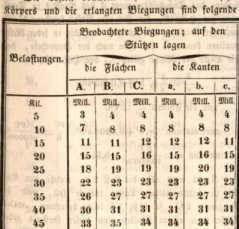 Körpers und die erlangten Biegungen ſind folgende
Belaſtungen. Beobachtete Biegungen; auf den
Stützen lagen
die Flächen die Kanten
A. B. C. a. b. c.
Kil. Mill. Mill. Mill. Mill. Mill. Mill.
5 3 4 4 4 4 4
10 7 8 8 8 8 8
15 11 11 12 12 12 11
20 15 15 16 15 16 15
25 18 19 19 19 20 19
30 22 23 23 23 23 23
35 26 27 27 27 27 27
40 30 31 31 31 31 31
45 33 35 34 34 34 34